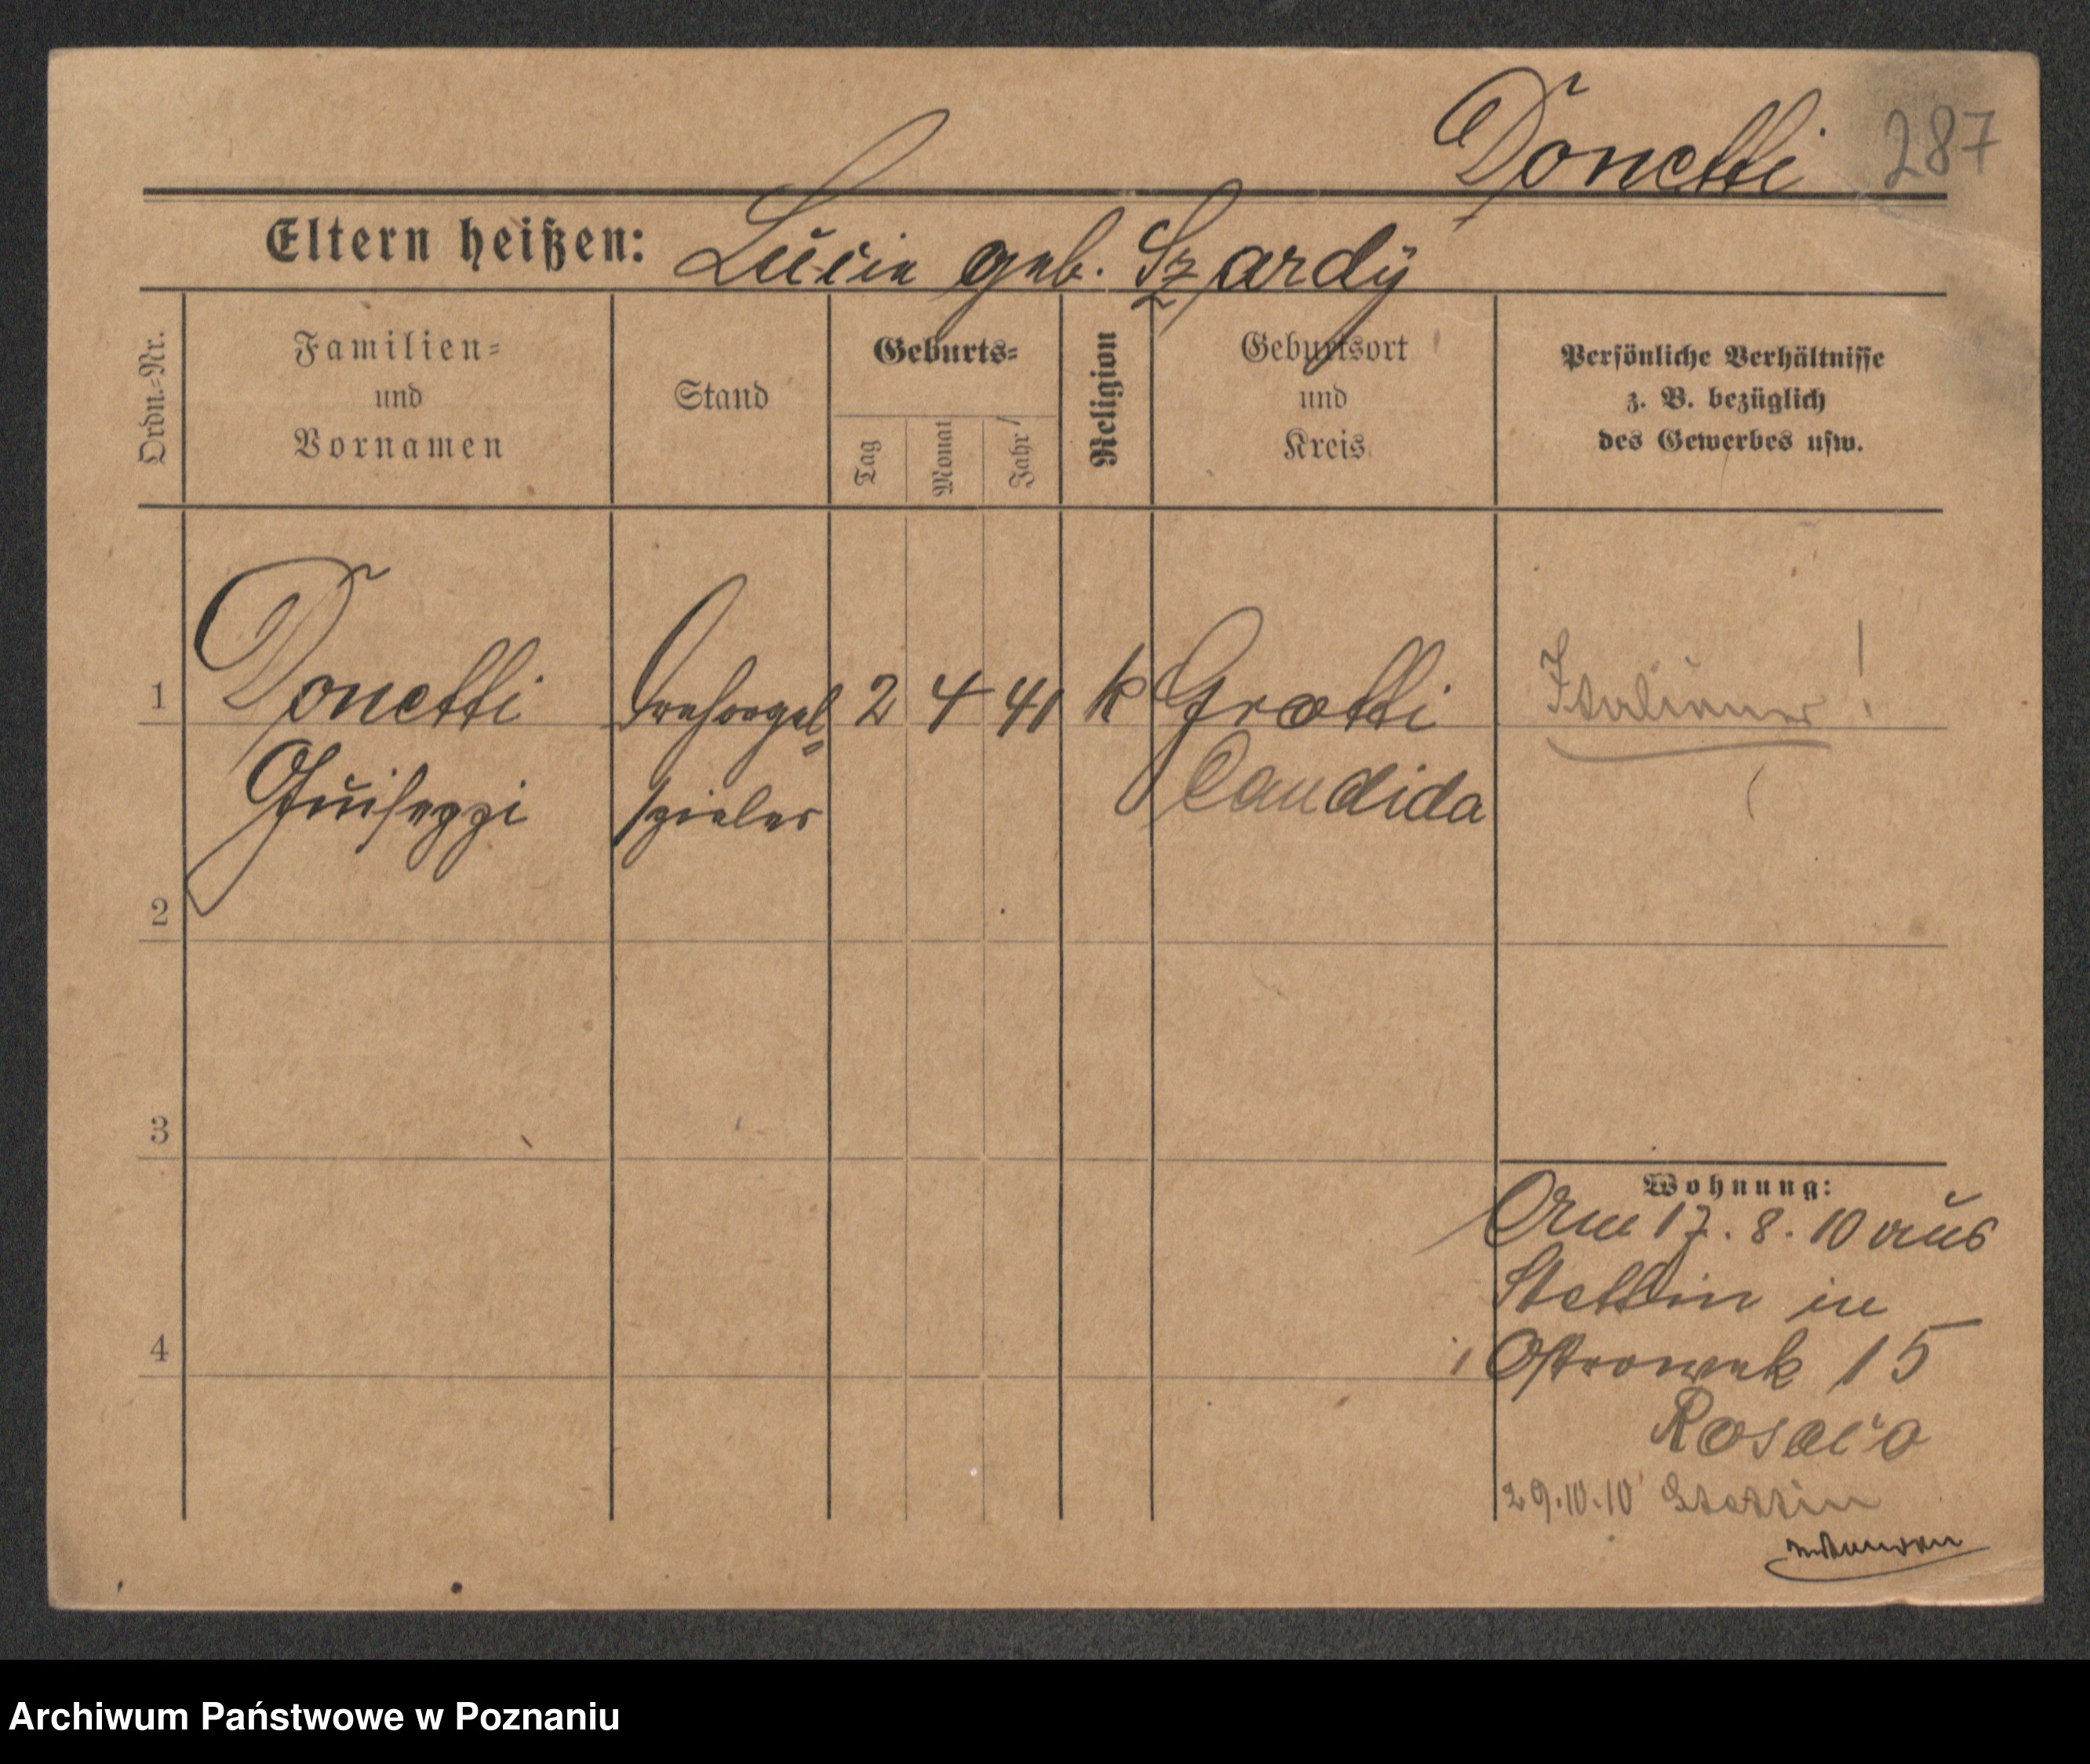 Donetti 287
Eltern heißen: Lucie geb. Szardy
Ordn.-Nr.
Familien-
und
Vornamen
Stand
Geburts-
Tag
Monat
Jahr
Religion
Geburtsort
und
Kreis
Persönliche Verhältnisse
z. B. bezüglich
des Gewerbes usw.
1 Donetti Drehorgel- 2 4 41 k Grotti Italiener!
Guiseppi spieler Candida
2
3
4
Wohnung:
Am 17. 8. 10 aus
Stettin in
Ostrowek 15
Rosario
29.10.10 Stettin
Archiwum Państwowe w Poznaniu